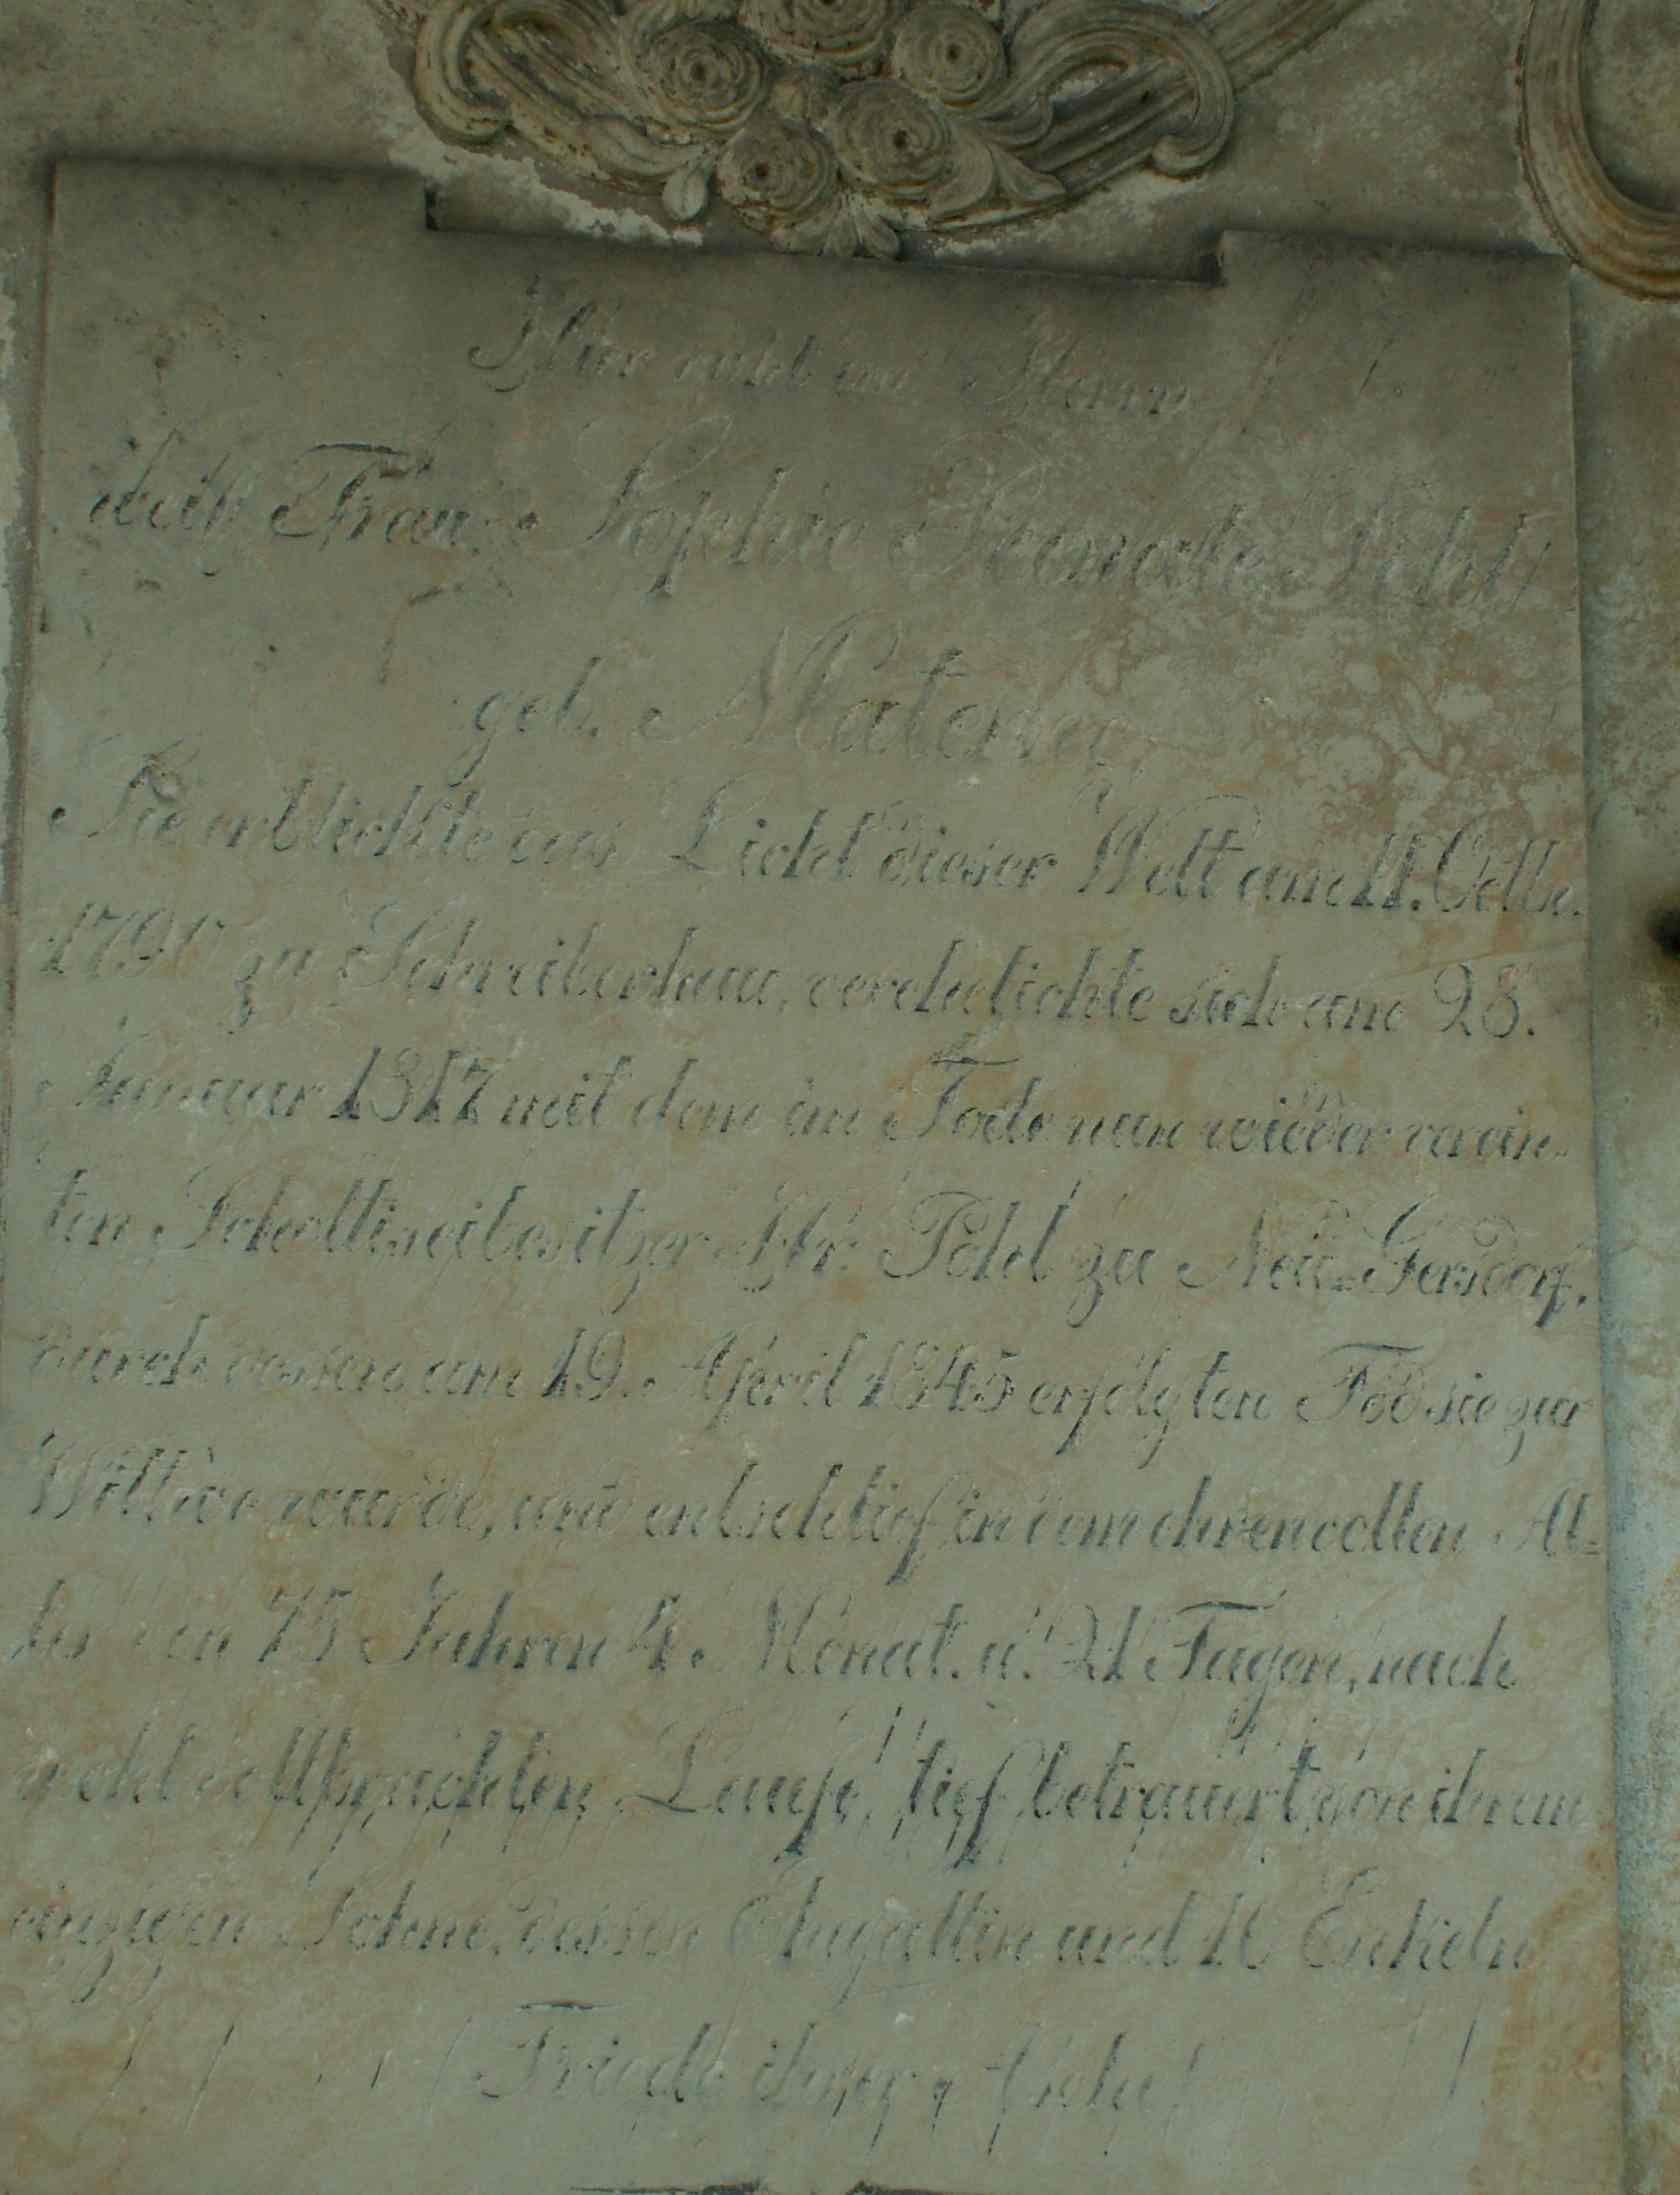 Hier ruht im Herrn
die Frau Sophie Beendte Pohl
geb. Matern
Sie erblickte das Licht dieser Welt am 11. Octb.
zu Schreiberhau, verehelichte sich am 28.
Januar 1817 mit dem im Tode nun wieder verein-
ten Scholtiseibesitzer Hr. Pohl zu Neu-Gersdorf,
durch dessen am 19. April 1845 erfolgten Tod sie zur
Wittwe wurde, und entschlief in dem ehrenvollen Al=
ter von 75 Jahren 4. Monat. u. 21 Tagen, nach
wohl vollbrachten Laufe, tief betrauert von ihrem
einzigen Sohne, dessen Ehegattin und Enkeln
Friede ihrer Asche!